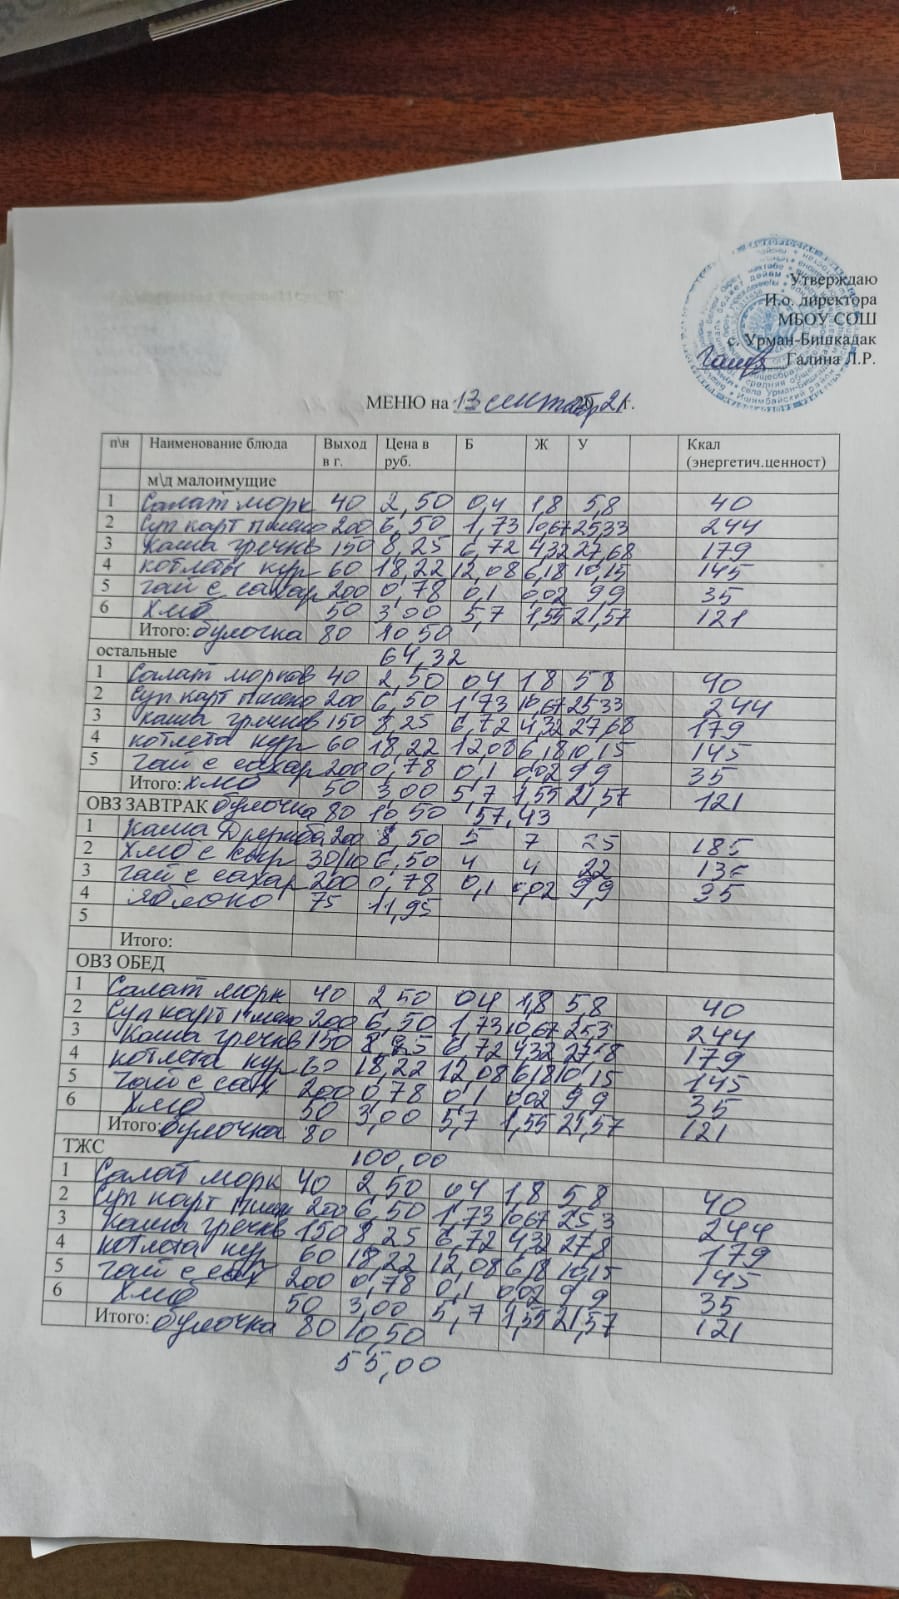 Утверждаю
И.о. директора
МБОУ СОШ
с. Урман-Бишкадак
Галина Л.Р.
МЕНЮ на 13 сентябр 2021г.
п\н Наименование блюда Выход в г. Цена в руб. Б Ж У Ккал (энергетич.ценност)
м\д малоимущие
1 Салат морк 40 2,50 0,4 1,8 5,8 40
2 Суп карт пшено 200 6,50 1,73 10,67 25,33 244
3 Каша гречнв 150 8,25 6,72 4,32 27,68 179
4 котлеты кур 60 18,22 12,08 6,18 10,15 145
5 чай с сахар 200 0,78 0,1 0,02 9,9 35
6 хмб 50 3,00 5,7 1,55 21,57 121
Итого: булочка 80 10 50
остальные 64,32
1 Салат морков 40 2,50 04 1 8 5 8 40
2 Суп карт пшено 200 6,50 1,73 10,67 25 33 244
3 каша гречнев 150 8,25 6,72 4,32 27,68 179
4 котлета кур 60 18,22 12,08 6,18 10,15 145
5 чай с сахар 200 0,78 0,1 0,02 9 9 35
Итого: хмб 50 3,00 5,7 1,55 21,57 121
ОВЗ ЗАВТРАК булочка 80 10 50 57,43
1 Каша Дружба 200 8,50 5 7 25 185
2 Хмб с сыр 30/10 6,50 4 4 22
3 чай с сахар 200 0,78 0,1 0,02 9,9 35
4 яблоко 75 11,95
5
Итого:
ОВЗ ОБЕД
1 Салат морк 40 2 50 04 1,8 5,8 40
2 Суп карт пшено 200 6,50 1,73 10 67 25,3 244
3 Каша гречнв 150 8 25 6 72 4 32 27 8 179
4 котлета кур 60 18,22 12,08 6,18 10,15 145
5 чай с сах 200 0,78 0,1 0,02 9 9 35
6 хмб 50 3,00 5,7 1,55 21,57 121
Итого: булочка 80
ТЖС 100,00
1 Салат морк 40 2 50 04 1,8 5 8 40
2 Суп карт пшен 200 6,50 1,73 10 67 25 3 244
3 каша гречнв 150 8 25 6,72 4 32 27 8 179
4 котлета кур 60 18,22 12,08 6,18 10,15 145
5 чай с сах 200 0,78 0,1 0,02 9 9 35
6 хмб 50 3,00 5,7 1,55 21,57 121
Итого: булочка 80 10,50
55,00